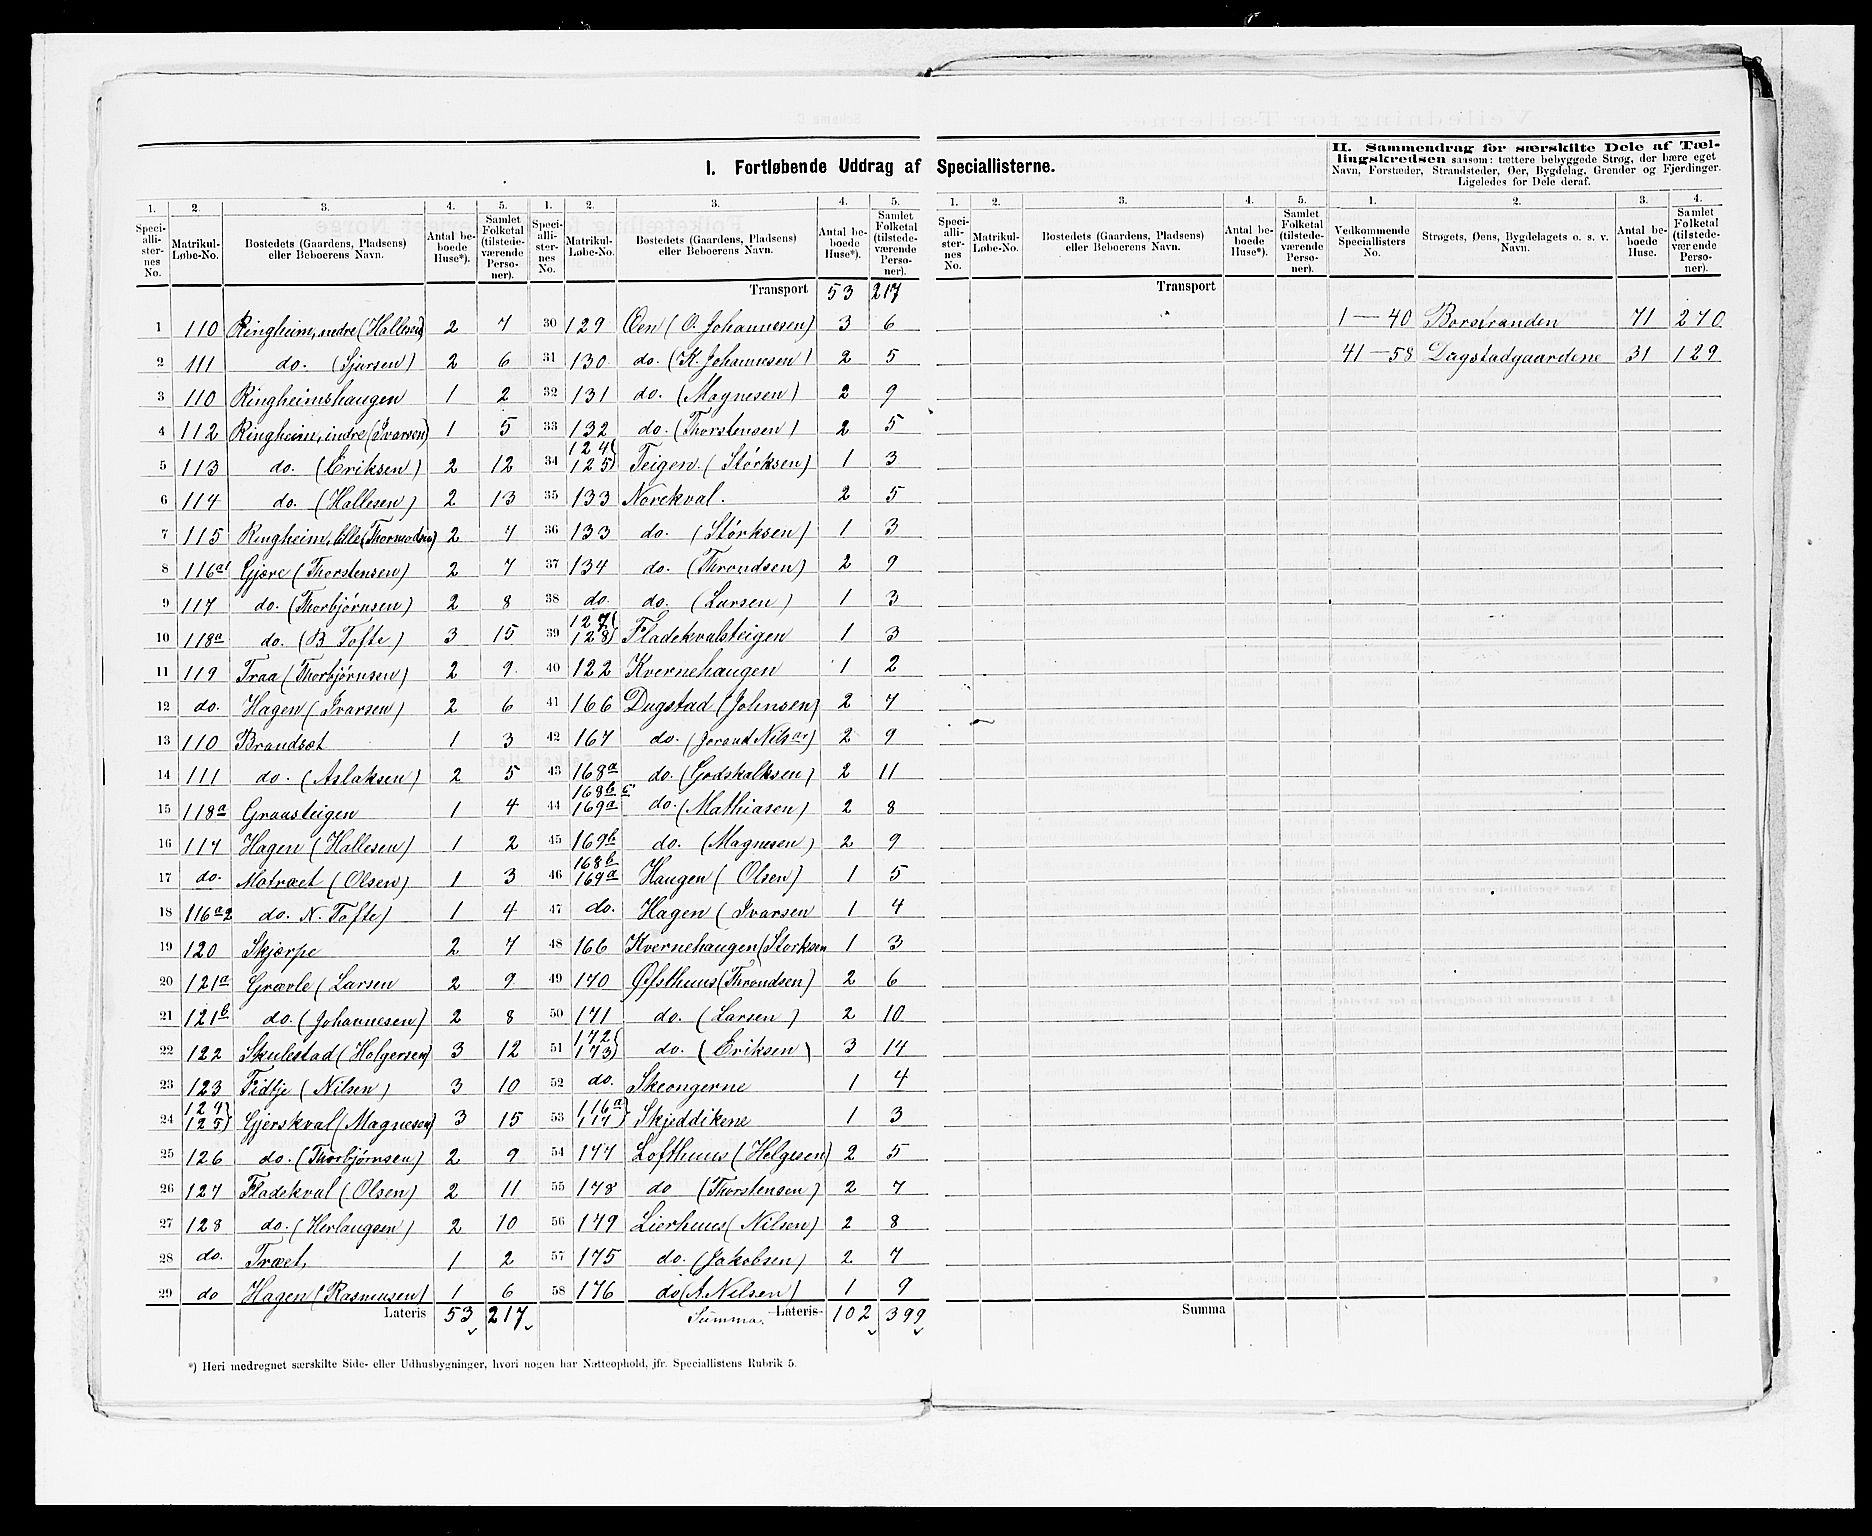 I. Fortløbende Uddrag af Speciallisterne.
II. Sammendrag for særskilte Dele af Tællingskredsen saasom: tættere bebyggede Strøg, der bære eget
Navn, Forstæder, Strandsteder, Øer, Bygdelag, Grender og Fjerdinger.
Ligeledes for Dele deraf.
1. 2. 3. 4. 5. 1. 2. 3. 4. 5.
Speciallisternes No. Matrikul-Løbe-No. Bostedets (Gaardens, Pladsens) eller Beboerens Navn. Antal beboede Huse*). Samlet Folketal (tilstedeværende Personer).
1 110 Ringheim, nedre (Hallesen) 2 7
2 111 do. (Sjursen) 2 6
3 110 Ringheimshaugen 1 2
4 112 Ringheim, indre (Ivarsen) 1 5
5 113 do. (Eriksen) 2 12
6 114 do. (Hallesen) 2 13
7 115 Ringheim, lille (Thormodsen) 2 7
8 116a1 Gjære (Thorstensen) 2 7
9 117 do. (Thorbjørnsen) 2 8
10 118a do. (B Tofte) 3 15
11 119 Traa (Thorbjørnsen) 2 9
12 do. Hagen (Ivarsen) 2 6
13 110 Brandsæt 1 3
14 111 do. (Aslaksen) 2 5
15 118a Graasteigen 1 4
16 117 Hagen (Hallesen) 1 2
17 do. Motræet (Olsen) 1 3
18 116a2 do. N. Tofte) 1 4
19 120 Skjærpe 2 7
20 121a Grævle (Larsen 2 9
21 121b do. (Johannesen) 2 8
22 122 Skulestad (Holgersen) 3 12
23 123 Fidtje (Nilsen) 3 10
24 124 125) Gjerskval (Magnesen) 3 15
25 126 do. (Thorbjørnsen) 2 9
26 127 Fladekval (Olsen) 2 11
27 128 do. (Herlaugsen) 2 10
28 do. Træet, 1 2
29 do Hagen (Rasmussen) 1 6
Lateris 53 217
Speciallisternes No. Matrikul-Løbe-No. Bostedets (Gaardens, Pladsens) eller Beboerens Navn. Antal beboede Huse*). Samlet Folketal (tilstedeværende Personer).
Transport 53 217
30 129 Øen (O. Johannesen) 3 6
31 130 do. (K. Johannesen) 2 5
32 131 do. (Magnesen) 2 9
33 132 do. (Thorstensen) 2 5
34 124 125) Teigen. (Størksen) 1 3
35 133 Norekval. 2 5
36 133 do. (Størksen) 1 3
37 134 do. (Throndsen) 2 9
38 do. do. (Larsen) 1 3
39 127 128) Fladekvalsteigen 1 3
40 122 Kvernehaugen 1 2
41 166 Dugstad (Johnsen) 2 7
42 167 do. (Jorand Nilsdr) 2 9
43 168a do. (Godskalksen) 2 11
44 168b c 169a do. (Mathiasen) 2 8
45 169b do. (Magnesen) 2 9
46 168b 169a Haugen (Olsen) 1 5
47 do. Hagen (Ivarsen 1 4
48 166 Kvernehaugen (Storksen 1 3
49 170 Øfsthuus (Throndsen) 2 6
50 171 do. (Larsen) 2 10
51 172 173) do. (Eriksen) 3 14
52 do. Skeongerne 1 4
53 116a 117) Skjeddikene 1 3
54 177 Lofthuus (Helgesen) 2 5
55 178 do (Thorstensen) 2 7
56 179 Lierhuus (Nilsen) 2 8
57 175 do. (Jakobsen) 2 7
58 176 do (A. Nilsen) 1 9
Summa. Lateris 102 399
*) Heri medregnet særskilte Side- eller Udhusbygninger, hvori nogen har Natteophold, jfr. Speciallistens Rubrik 5.
1. 2. 3. 4. 5.
Speciallisternes No. Matrikul-Løbe-No. Bostedets (Gaardens, Pladsens) eller Beboerens Navn. Antal beboede Huse*). Samlet Folketal (tilstedeværende Personer).
Transport
Summa
1. 2. 3. 4.
Vedkommende Speciallisters No. Strøgets, Øens, Bygdelagets o. s. v. Navn. Antal beboede Huse. Samlet Folketal (tilstedeværende Personer).
1 — 40 Borstranden 71 270
41 — 58 Dugstadgaardene 31 129